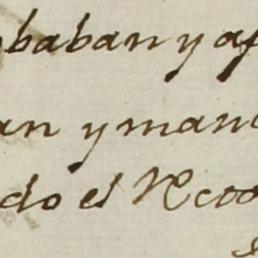 baban y ap
an y man
do el Reco